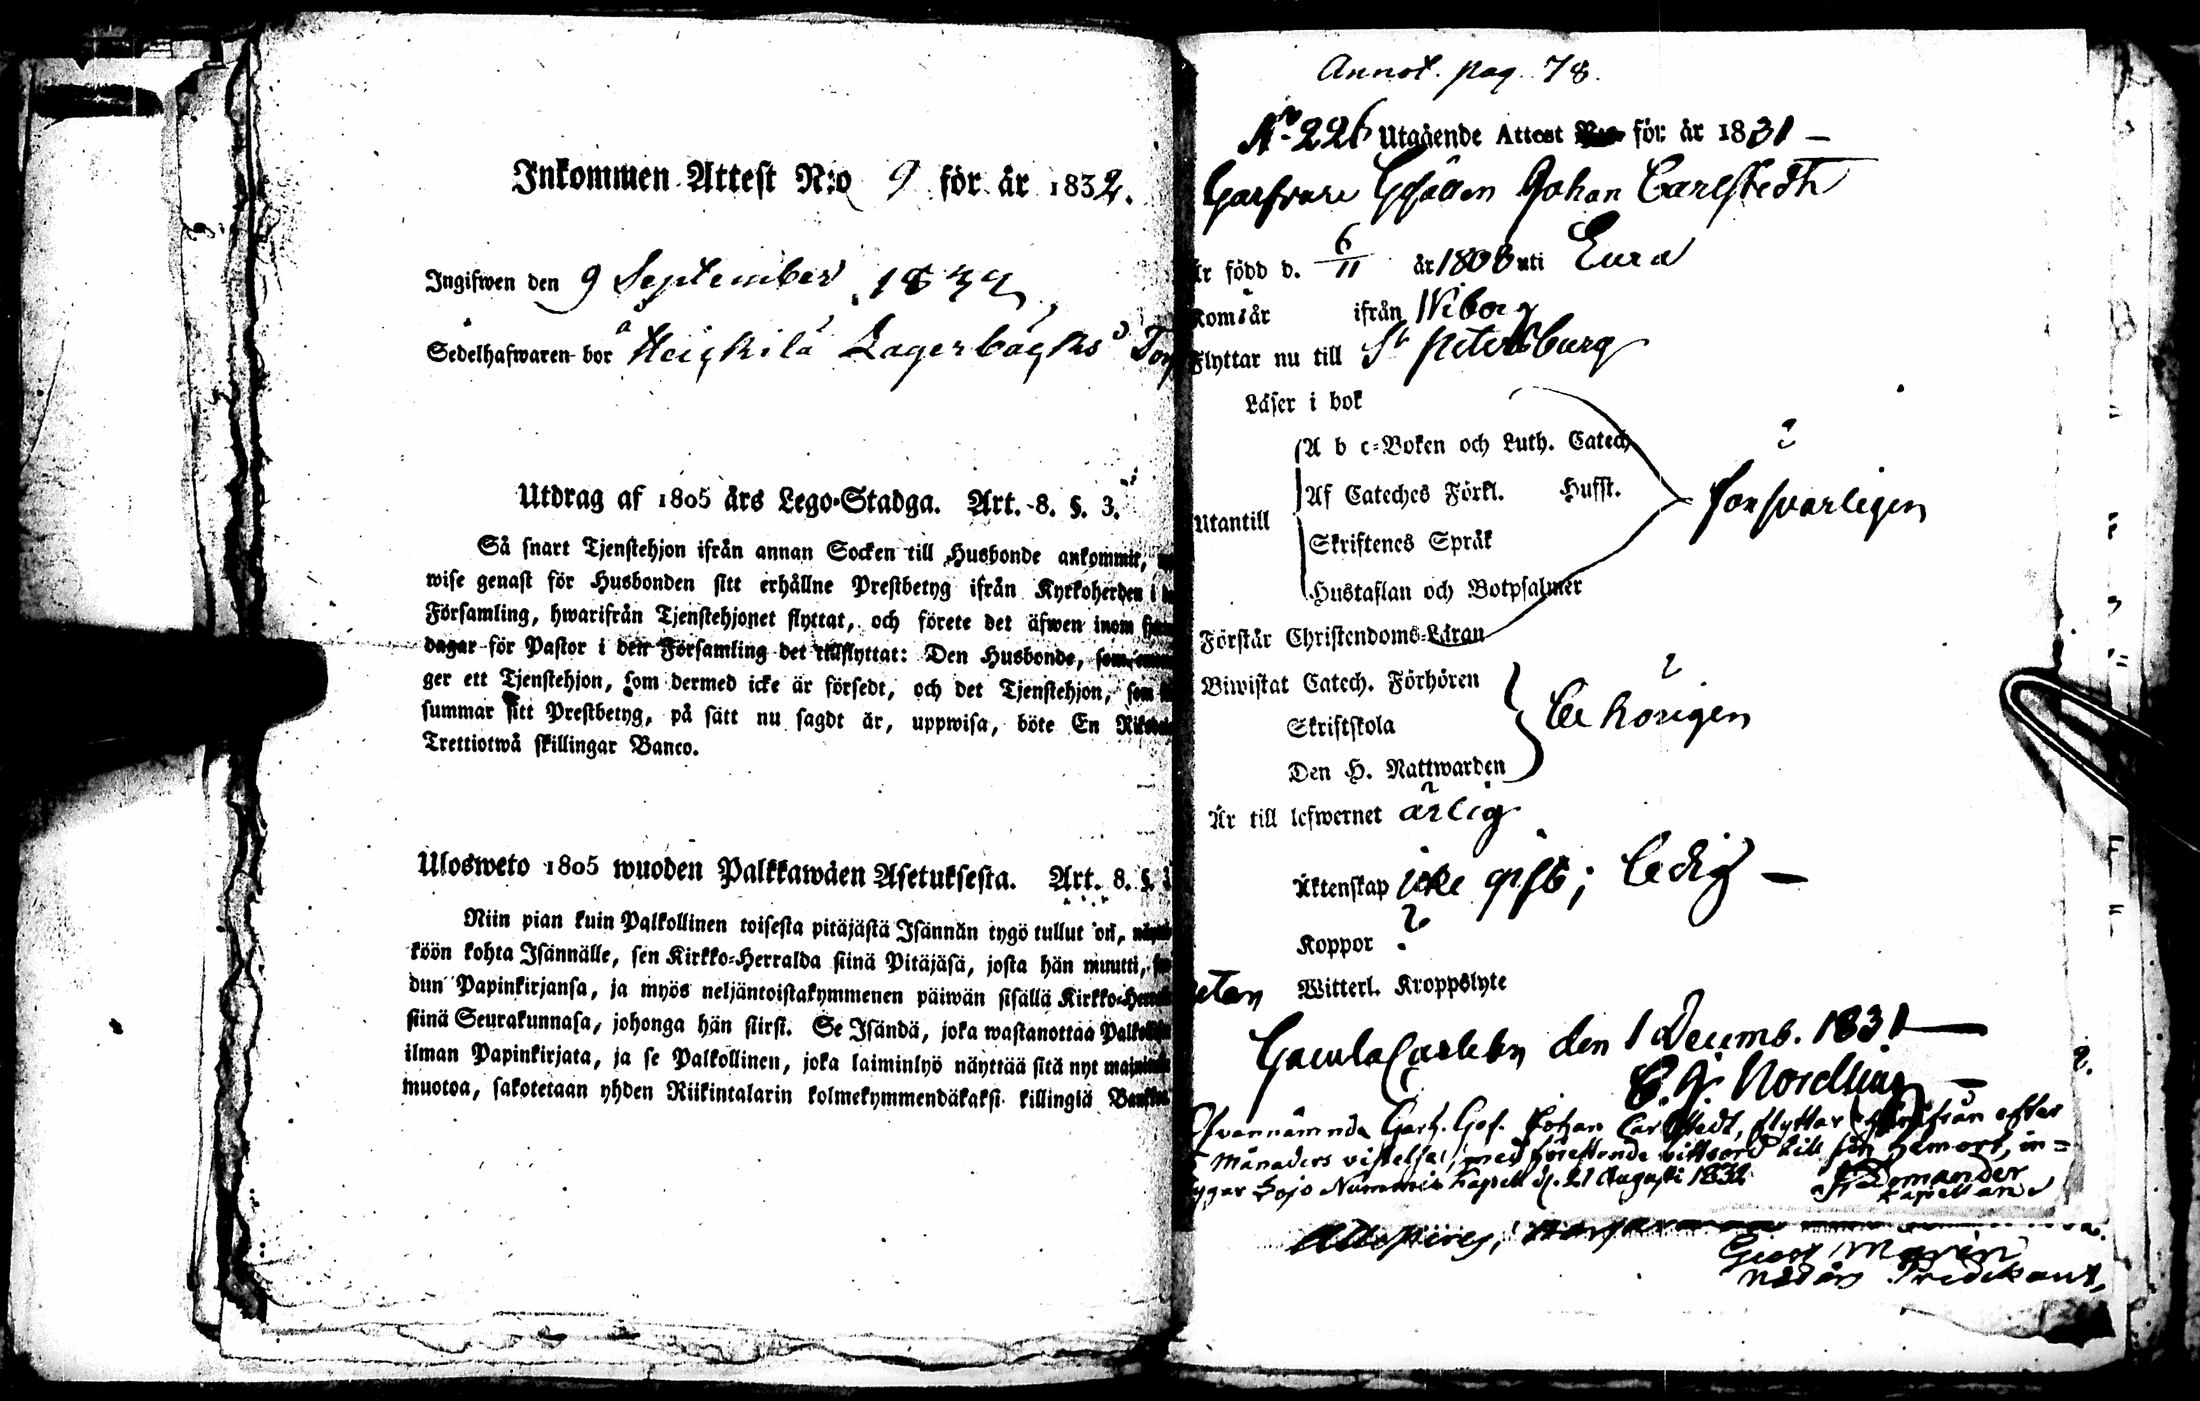 Inkommen Attest N:o 9 för år 1832.
Ingifwen den 9 September 1832
Sedelhafwaren bor å Heickilä Lagerbäcks Torp
Utdrag af 1805 års Lego-Stadga. Art. 8. §. 3.
Så snart Tjenstehjon ifrån annan Socken till Husbonde ankommit,
wise genast för Husbonden sitt erhållne Prestbetyg ifrån Kyrkoherden i
Församling, hwarifrån Tjenstehjonet flyttat, och förete det äfwen inom
dagar för Pastor i den Församling det tillflyttat: Den Husbonde,
ger ett Tjenstehjon, som dermed icke är försedt, och det Tjenstehjon,
summar sitt Prestbetyg, på sätt nu sagdt är, uppwisa, böte En
Trettiotwå skillingar Banco.
Ulosweto 1805 wuoden Palkkawäen Asetuksesta. Art. 8. §. 3
Niin pian kuin Palkollinen toisesta pitäjästä Isännän tygö tullut on,
köön kohta Isännälle, sen Kirkko-Herralda siinä Pitäjäsä, josta hän muutti,
dun Papinkirjansa, ja myös neljäntoistakymmenen päiwän sisällä Kirkko-
siinä Seurakunnasa, johonga hän siirsi. Se Isändä, joka wastanottaa
ilman Papinkirjata, ja se Palkollinen, joka laiminlyö näyttää sitä nyt
muotoa, sakotetaan yhden Riikintalarin kolmekymmendäkaksi killingiä
Annot. pag. 78.
No 226 Utgående Attest för år 1831 –
Garfvare Gesällen Johan Carlstedt
Är född d. 6/11 år 1808 uti Eura
Kom i år ifrån Wiborg
Flyttar nu till St Petersburg
Läser i bok
A b c-Boken och Luth. Catech
Af Cateches Förkl. Hufst.
Utantill
försvarligen
Skriftenes Språk
Hustaflan och Botpsalmer
Förstår Christendoms-Läran
Biwistat Catech. Förhören
Skriftskola
behörigen
Den H. Nattwarden
Är till lefwernet ärlig
Äktenskap icke gift; ledig –
Koppor ?
Witterl. Kroppslyte
GamlaCarleby den 1 Decemb. 1831
C. J. Nordling
Ofvannämnde Garf. Ges. Johan Carlstedt, flyttar härifrån efter
Månaders vistelse, med förestående vittsord till sin hemort, in=
tygar Lojo Nummis Kapell d. 21 Augusti 1832
Kapellan
Predikant,